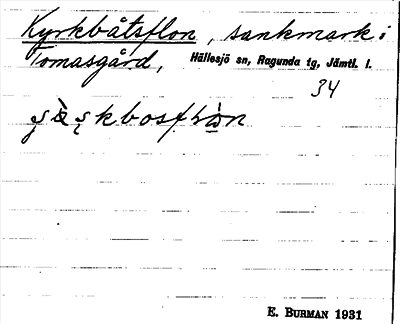 Kyrkbåtsflon, sankmark i
Tomasgård, Hällesjö sn, Ragunda tg, Jämtl. l.
34
E. BURMAN 1931